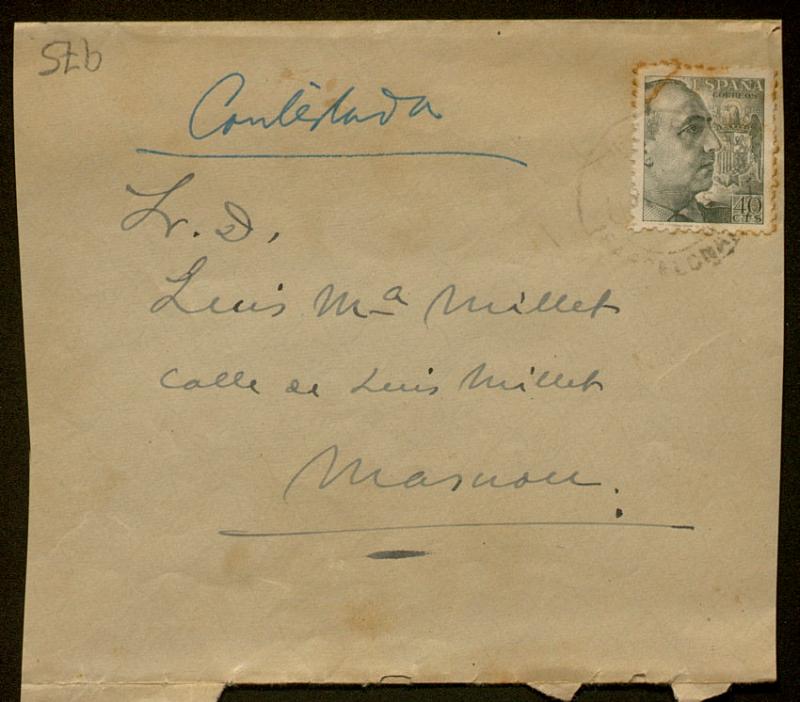 975
Contestada
ESPAÑA
CORREOS
40
CTS
BARCELONA
Sr. D.
Luis Mª Millet
calle de Luis Millet
Masnou.